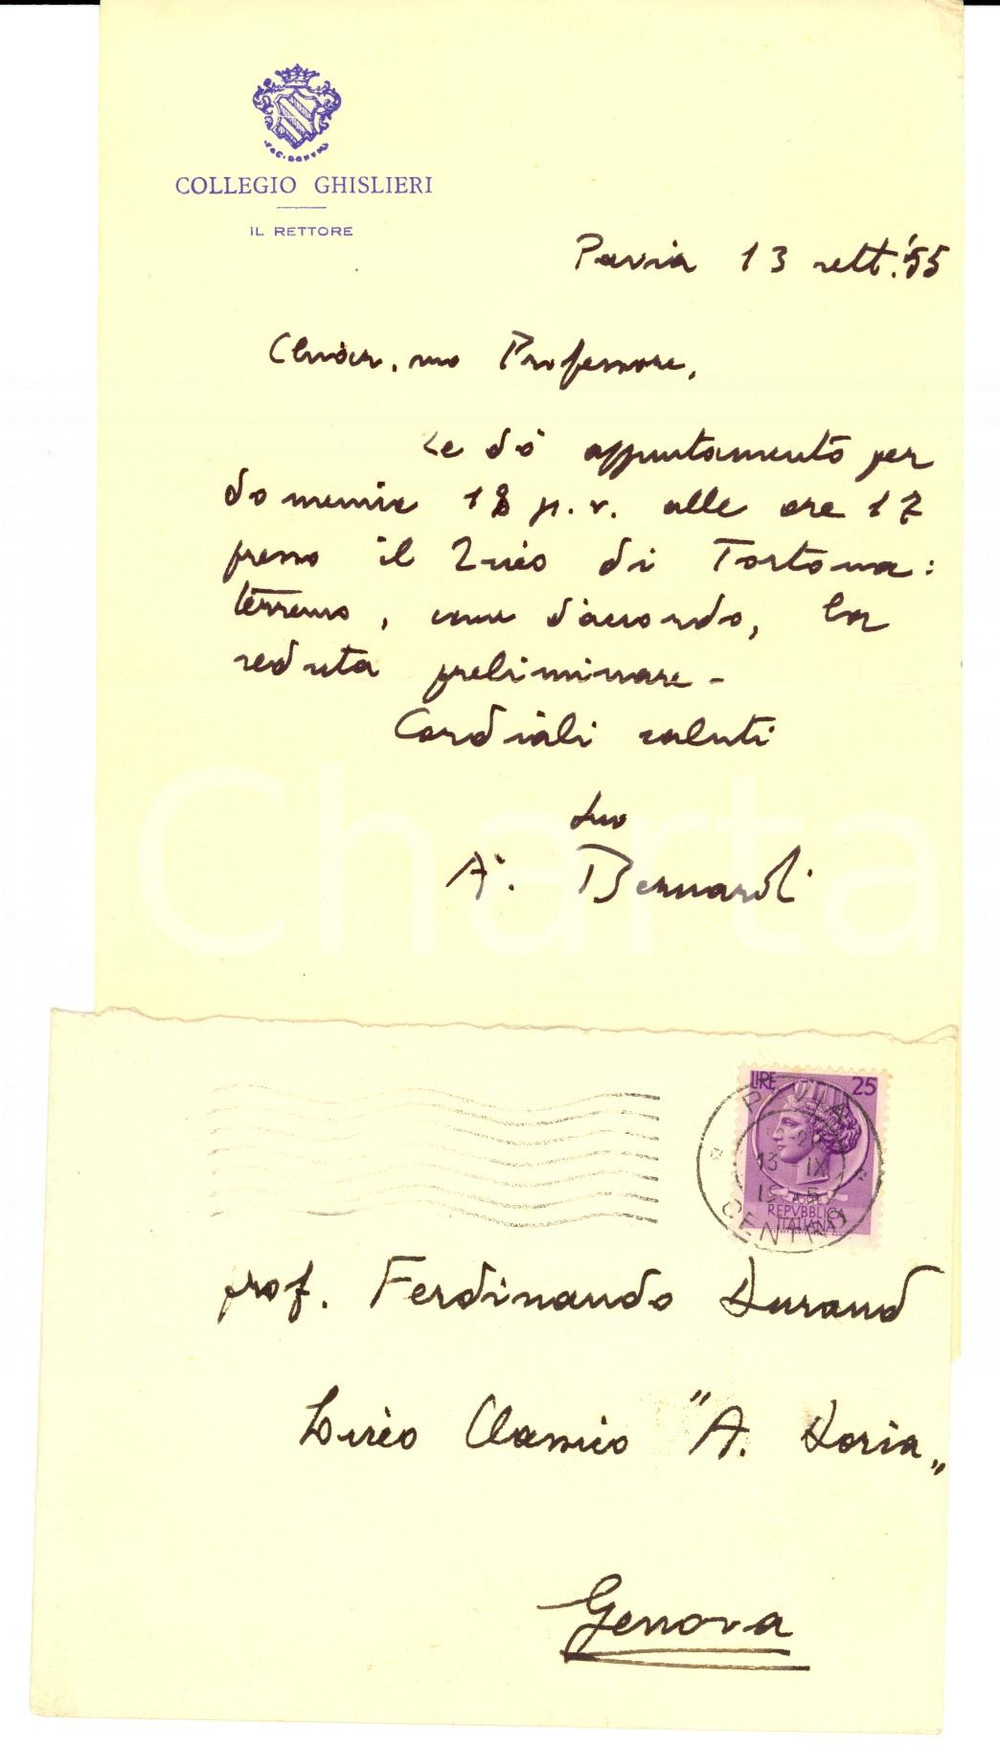 COLLEGIO GHISLIERI
IL RETTORE
Pavia 13 sett. '55
Chiar.mo Professore,
Le dò appuntamento per
domenica 18 p.v. alle ore 17
presso il Liceo di Tortona:
terremo, come d'accordo, la
seduta preliminare -
Cordiali saluti
Suo
A. Bernardi
Charta
LIRE 25
PAVIA
13 IX
CENTRO
REPVBBLICA
ITALIANA
prof. Ferdinando Durand
Liceo Classico "A. Doria"
Genova